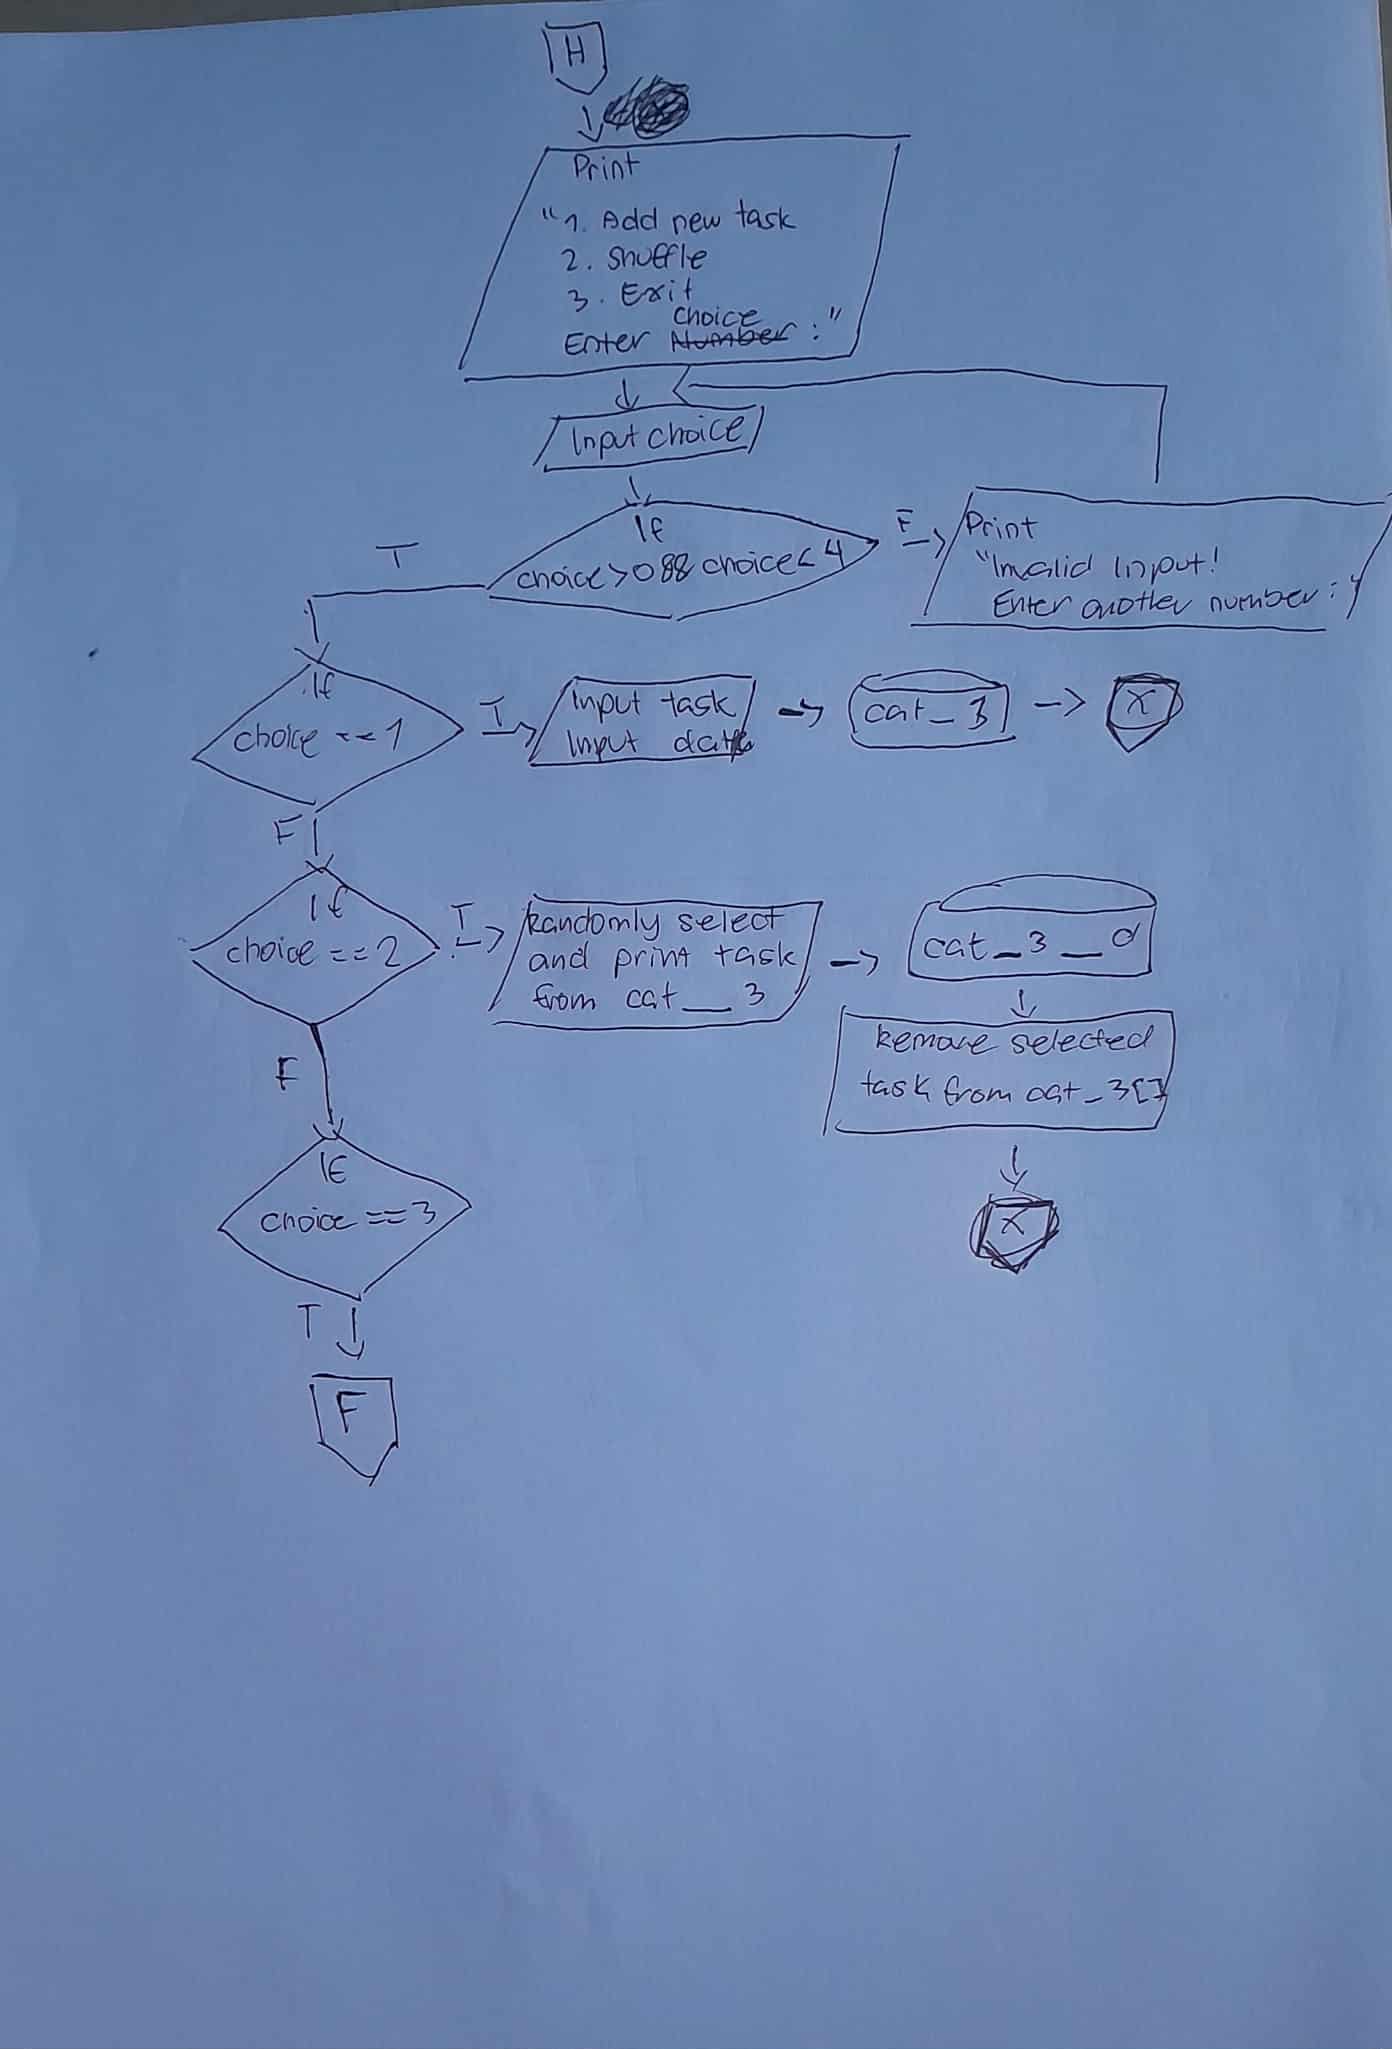 H
Print
"1. Add new task
2. Shuffle
3. Exit
choice
Enter Number : "
Input choice
If
choice>0 && choice<4
F
Print
"Invalid Input!
Enter another number : "
T
If
choice == 1
T
Input task
Input date
cat_3
X
F
If
choice == 2
T
Randomly select
and print task
from cat__3
cat_3__d
Remove selected
task from cat_3[]
X
F
If
choice == 3
T
F